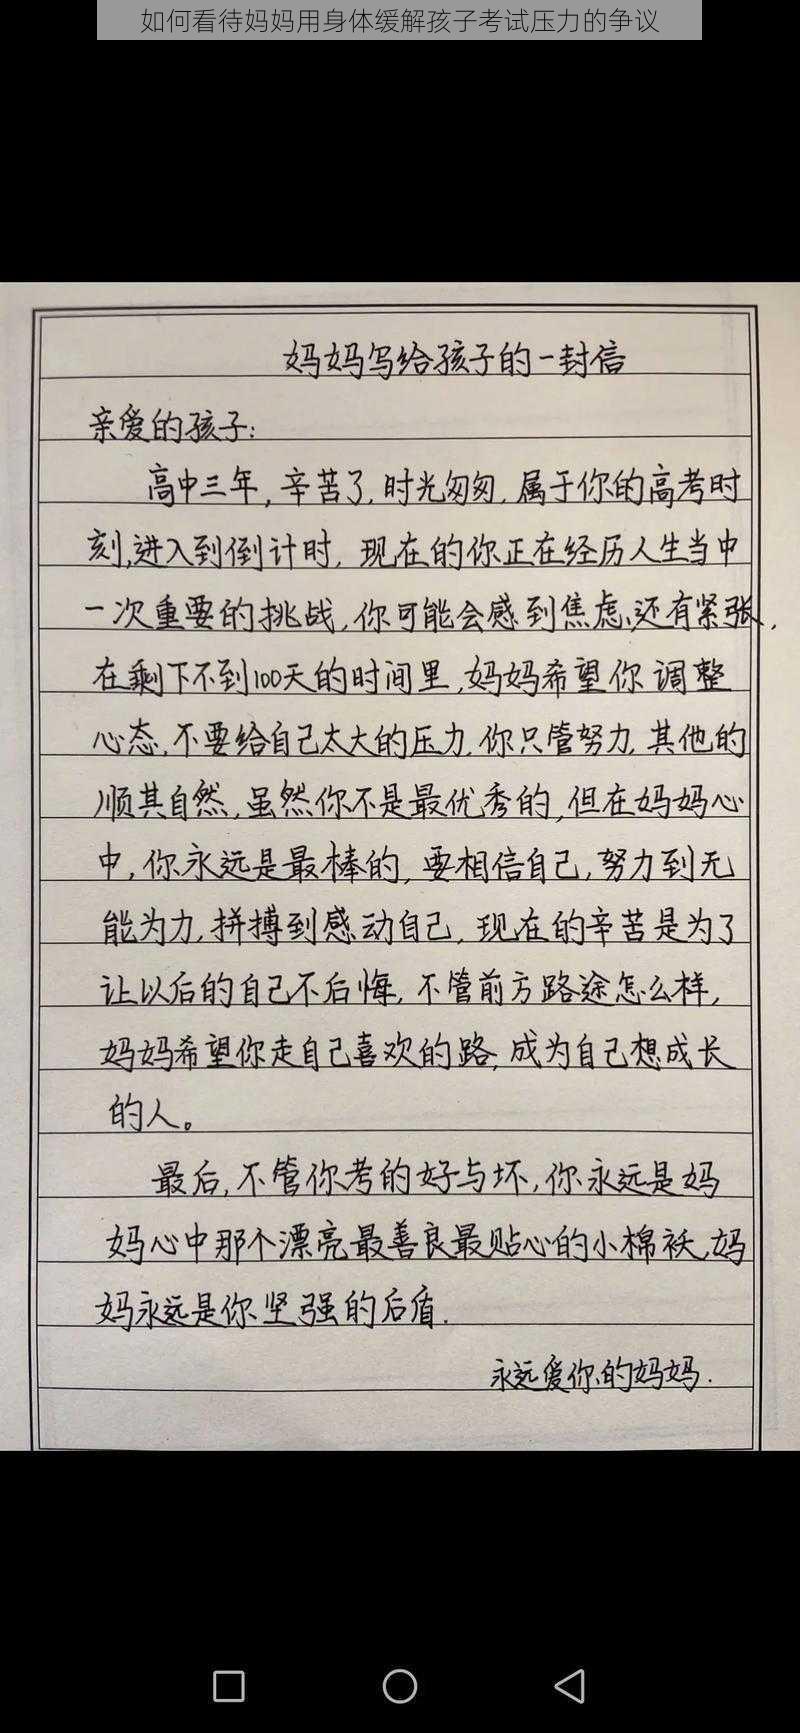 如何看待妈妈用身体缓解孩子考试压力的争议
妈妈写给孩子的一封信
亲爱的孩子:
高中三年,辛苦了,时光匆匆,属于你的高考时
刻,进入到倒计时,现在的你正在经历人生当中
一次重要的挑战,你可能会感到焦虑,还有紧张,
在剩下不到100天的时间里,妈妈希望你调整
心态,不要给自己太大的压力,你只管努力,其他的
顺其自然,虽然你不是最优秀的,但在妈妈心
中,你永远是最棒的,要相信自己,努力到无
能为力,拼搏到感动自己,现在的辛苦是为了
让以后的自己不后悔,不管前方路途怎么样,
妈妈希望你走自己喜欢的路,成为自己想成长
的人。
最后,不管你考的好与坏,你永远是妈
妈心中那个漂亮最善良最贴心的小棉袄,妈
妈永远是你坚强的后盾.
永远爱你的妈妈.